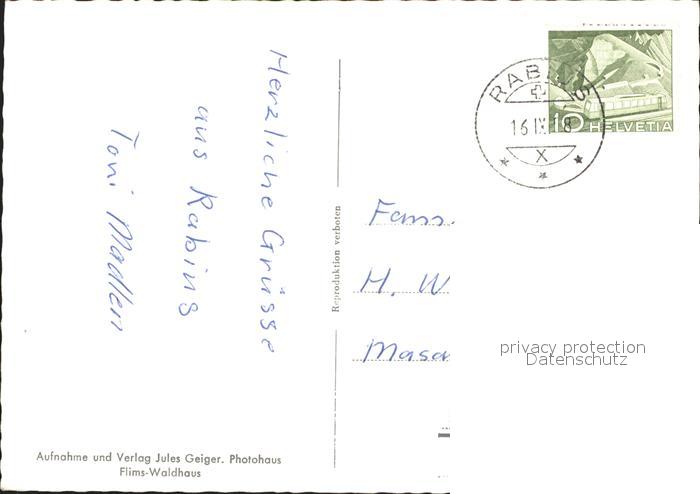 Herzliche Grüsse
aus Rabius
Toni Madlen
Aufnahme und Verlag Jules Geiger. Photohaus
Flims-Waldhaus
Reproduktion verboten
RABIUS
16 IX 8
X
10 HELVETIA
Fam.
H. W
Masa
privacy protection
Datenschutz